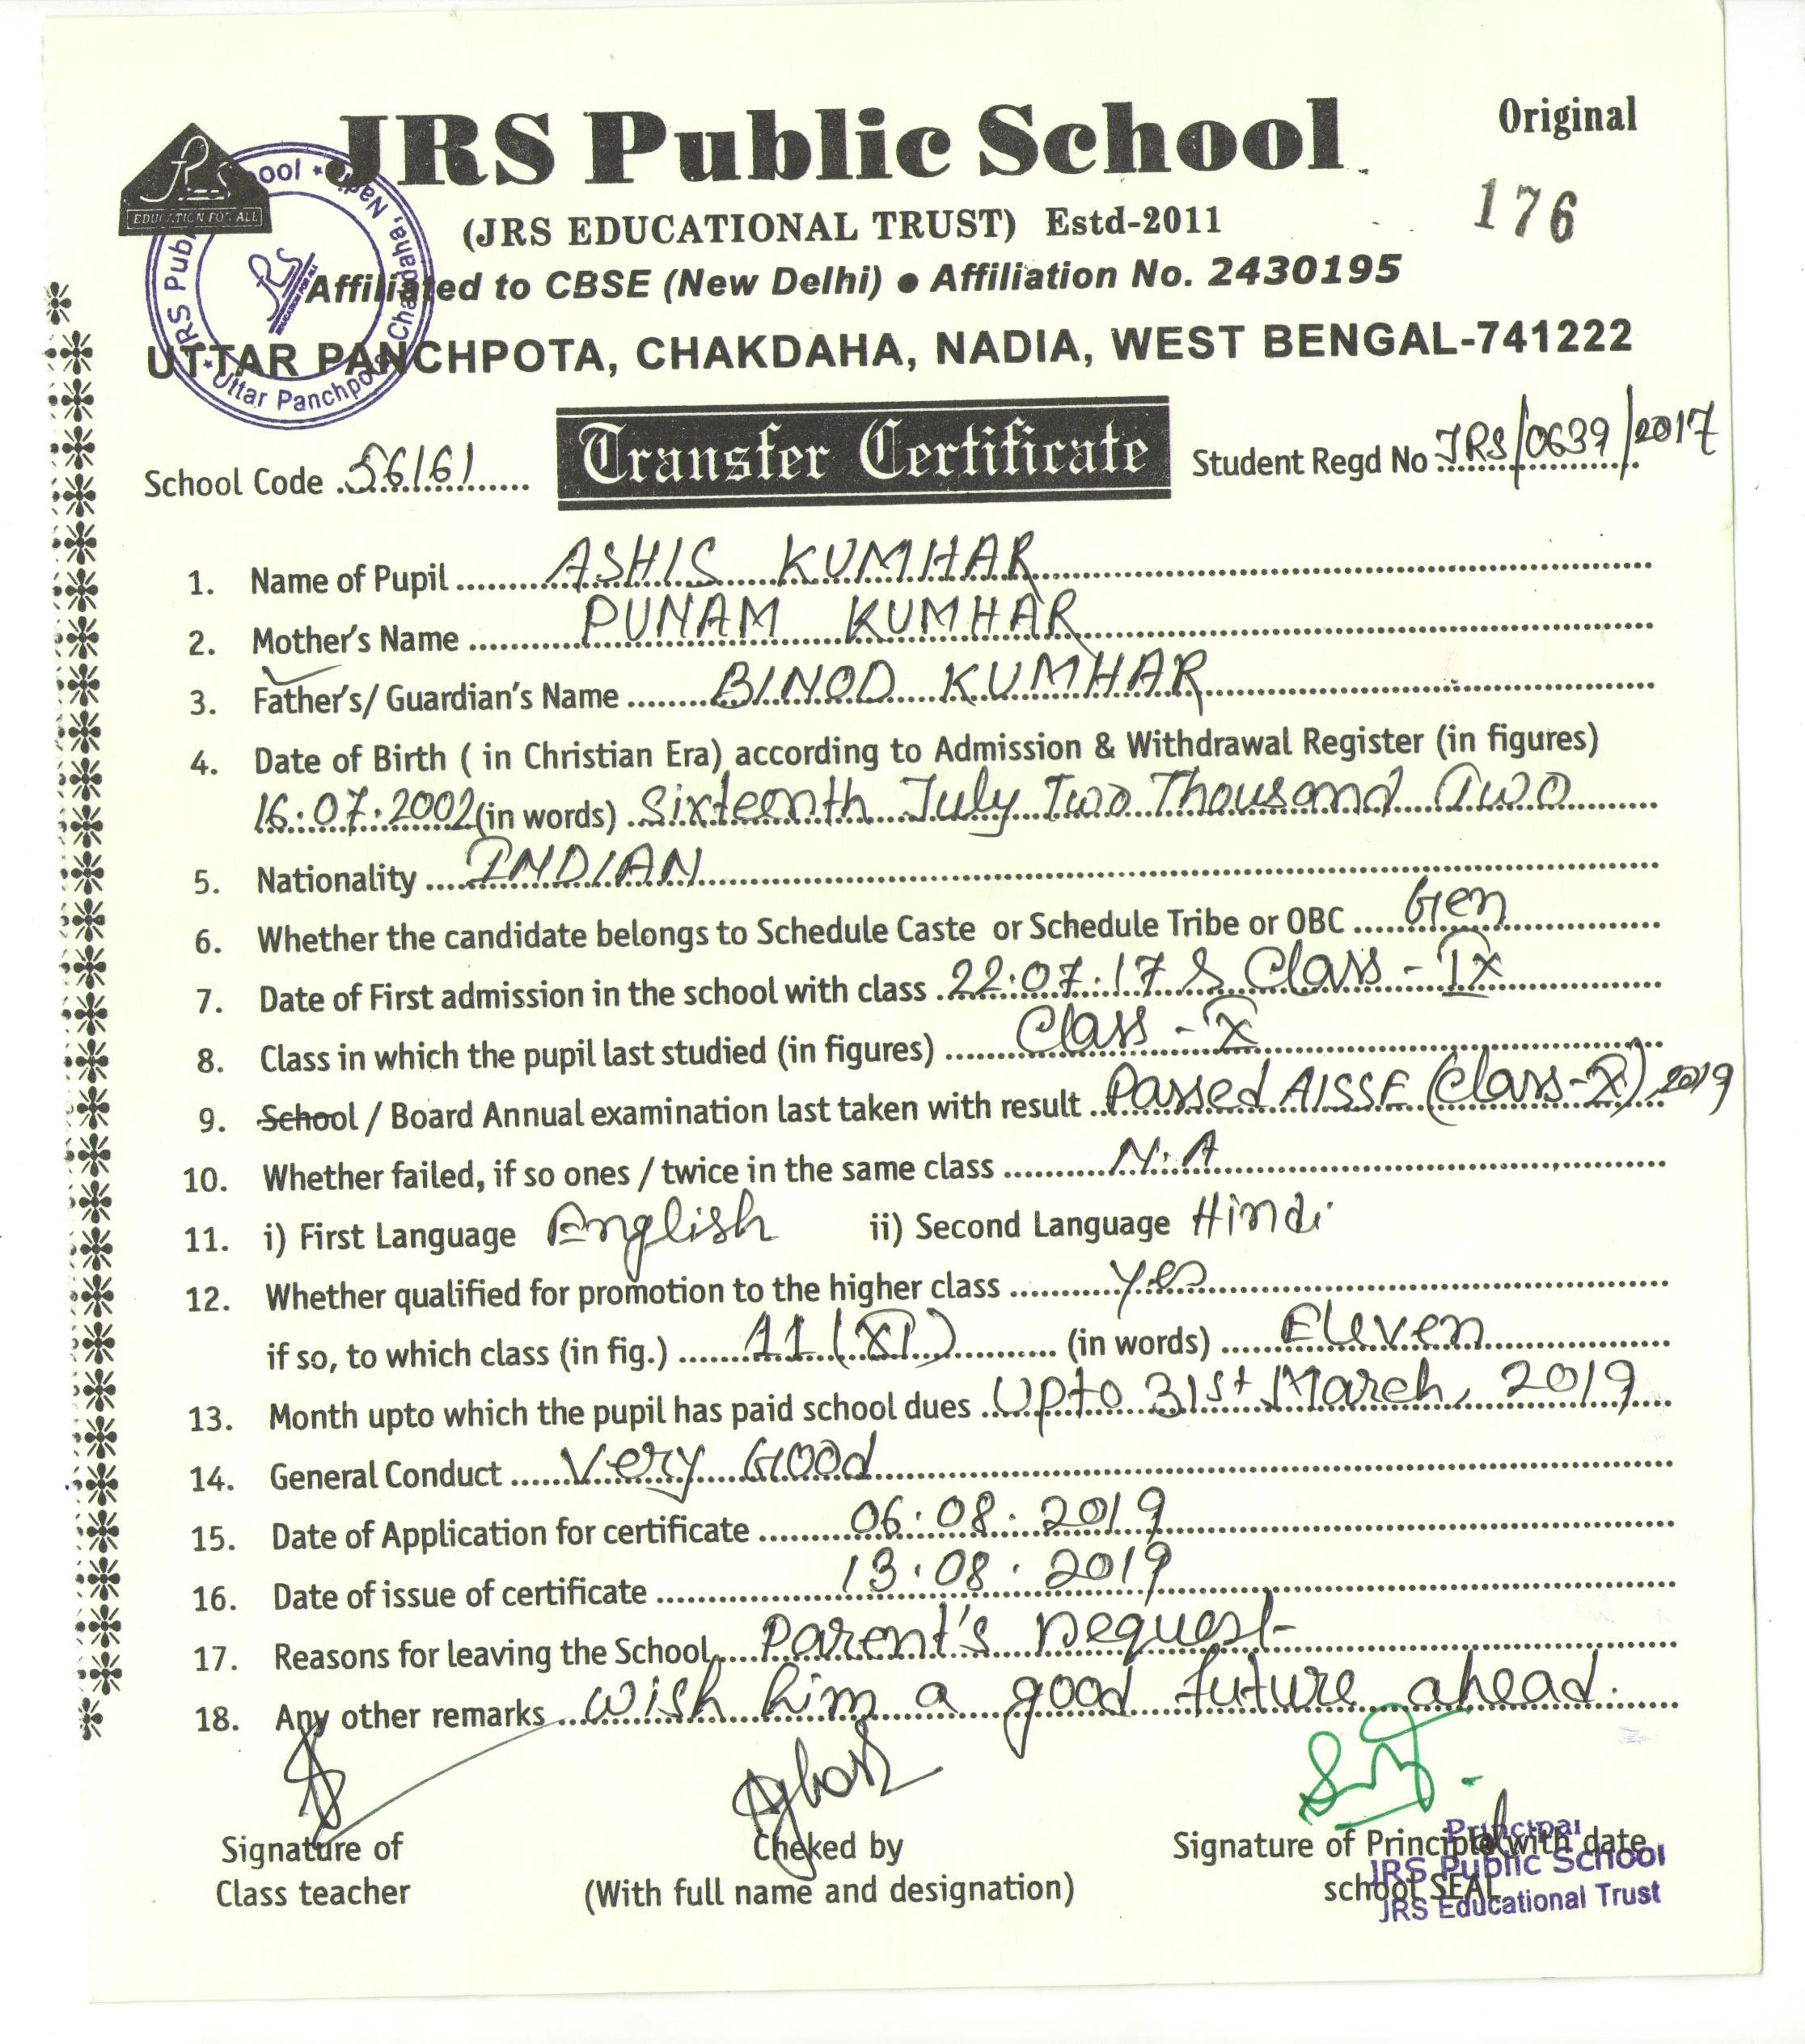 JRS Public School
Original
176
JRS
EDUCATION FOR ALL
(JRS EDUCATIONAL TRUST) Estd-2011
Affiliated to CBSE (New Delhi) ● Affiliation No. 2430195
UTTAR PANCHPOTA, CHAKDAHA, NADIA, WEST BENGAL-741222
School Code 56161
Transfer Certificate
Student Regd No JRS/0639/2017
1. Name of Pupil ASHIS KUMHAR
2. Mother's Name PUNAM KUMHAR
3. Father's/ Guardian's Name BINOD KUMHAR
4. Date of Birth ( in Christian Era) according to Admission & Withdrawal Register (in figures)
16.07.2002 (in words) Sixteenth July Two Thousand Two
5. Nationality INDIAN
6. Whether the candidate belongs to Schedule Caste or Schedule Tribe or OBC Gen
7. Date of First admission in the school with class 22.07.17 & Class - IX
8. Class in which the pupil last studied (in figures) Class - X
9. School / Board Annual examination last taken with result Passed AISSE (Class-X), 2019
10. Whether failed, if so ones / twice in the same class N.A
11. i) First Language English ii) Second Language Hindi
12. Whether qualified for promotion to the higher class yes
if so, to which class (in fig.) 11 (XI) (in words) Eleven
13. Month upto which the pupil has paid school dues Upto 31st March, 2019
14. General Conduct Very Good
15. Date of Application for certificate 06.08.2019
16. Date of issue of certificate 13.08.2019
17. Reasons for leaving the School Parent's request
18. Any other remarks wish him a good future ahead.
Signature of
Class teacher
Cheked by
(With full name and designation)
Signature of Principal with date
school SEAL
Principal
JRS Public School
JRS Educational Trust